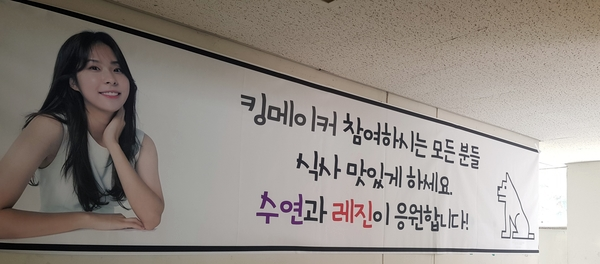 킹메이커 참여하시는 모든 분들
식사 맛있게 하세요.
수연과 레진이 응원합니다!